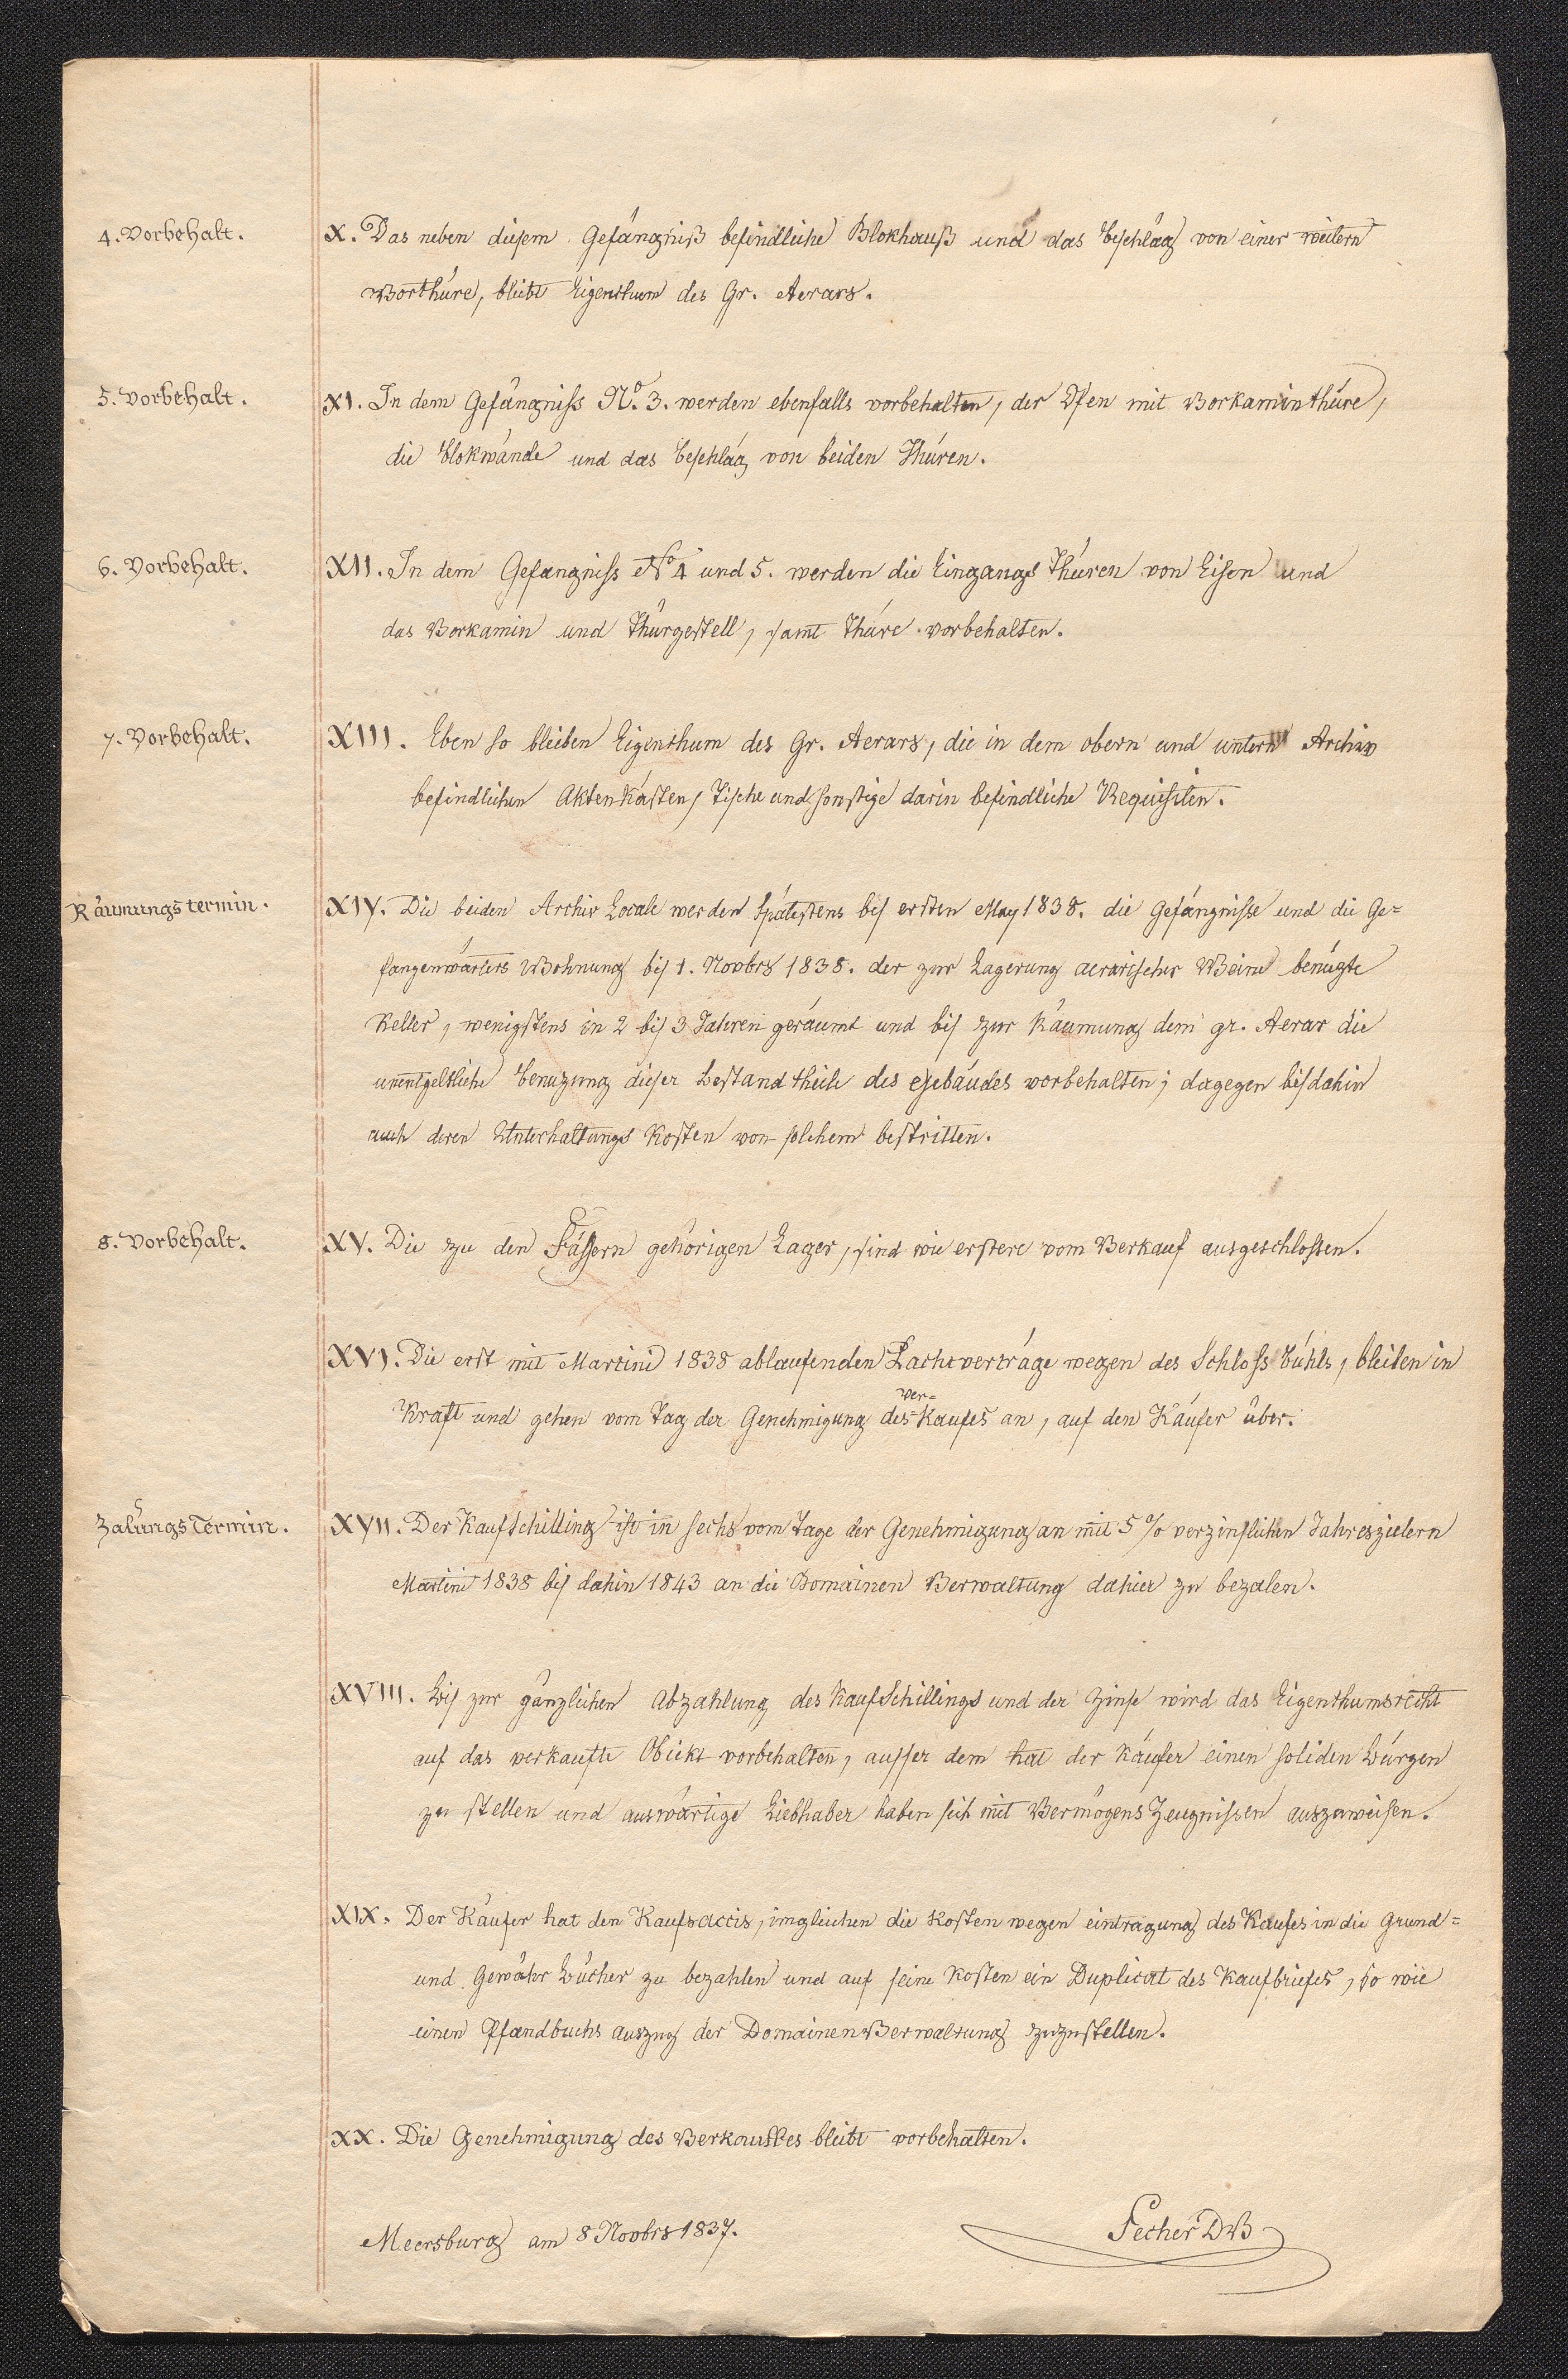 4. Vorbehalt.
X. Das neben diesem Gefängniß befindliche Blokhauß und das Beschläg von einer weitern
Vorthüre, bleibt Eigenthum des Gr. Aerars.
5. Vorbehalt.
XI. In dem Gefängniss No. 3. werden ebenfalls vorbehalten, der Ofen mit Vorkaminthüre,
die Blokwände und das Beschläg von beiden Thüren.
6. Vorbehalt.
XII. In dem Gefängniss No 4 und 5. werden die Eingangs Thüren von Eisen und
das Vorkamin und Thürgestell, samt Thüre vorbehalten.
7. Vorbehalt.
XIII. Eben so bleiben Eigenthum des Gr. Aerars, die in dem obern und untern Archiv
befindlichen Aktenkästen, Tische und sonstige darin befindliche Requisiten.
Räumungstermin.
XIV. Die beiden Archiv Locale werden spätestens bis ersten May 1838. die Gefängnisse und die Ge=
fangenwärters Wohnung bis 1. Novbrs 1838. der zur Lagerung aerarischer Weine benüzte
Keller, wenigstens in 2 bis 3 Jahren geräumt und bis zur Räumung dem gr. Aerar die
unentgeltliche Benuzung dieser Bestandtheile des Gebäudes vorbehalten; dagegen bis dahin
auch deren Unterhaltungs Kosten von solchem bestritten.
8. Vorbehalt.
XV. Die zu den Fässern gehörigen Lager, sind wie erstere vom Verkauf ausgeschlossen.
XVI. Die erst mit Martini 1838 ablaufenden Pachtverträge wegen des Schloss Bühls, bleiben in
Kraft und gehen vom Tag der Genehmigung des Ver=Kaufes an, auf den Käufer über.
Zalungs Termin.
XVII. Der Kaufschilling ist in sechs vom Tage der Genehmigung an mit 5 % verzinslichen Jahreszielern
Martini 1838 bis dahin 1843 an die Domainen Verwaltung dahier zu bezalen.
XVIII. Bis zur gänzlichen Abzahlung des Kaufschillings und der Zinse wird das Eigenthumsrecht
auf das verkaufte Obiekt vorbehalten, ausser dem hat der Käufer einen soliden Bürgen
zu stellen und auswärtige Liebhaber haben sich mit Vermögens Zeugnissen auszuweisen.
XIX. Der Käufer hat den Kaufsaccis, imgleichen die Kosten wegen eintragung des Kaufes in die Grund=
und Gewähr Bücher zu bezahlen und auf seine Kosten ein Duplicat des Kaufbriefes, so wie
einen Pfandbuchs auszug der Domainen Verwaltung zuzustellen.
XX. Die Genehmigung des Verkaufes bleibt vorbehalten.
Meersburg am 8 Novbrs 1837.
Secher DV